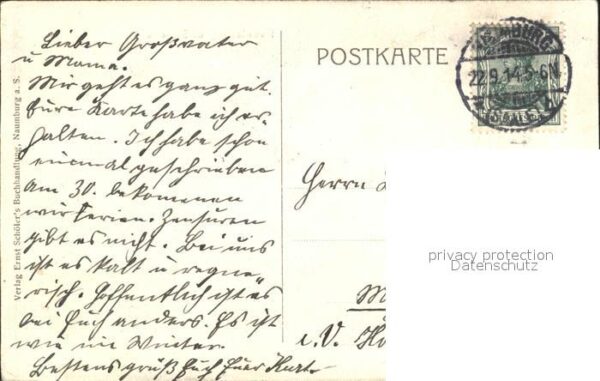 Lieber Großvater
u Mama.
Mir geht es ganz gut.
Eure Karte habe ich er-
halten. Ich habe schon
einmal geschrieben
Am 30. bekommen
wir Ferien. Zensuren
gibt es nicht. Bei uns
ist es kalt u regne-
risch. Hoffentlich ist es
bei Euch anders. Es ist
wie im Winter.
Bestens grüßt Euch Euer Kurt.
Verlag Ernst Schöler's Buchhandlung, Naumburg a. S.
POSTKARTE
NAUMBURG
22.9.14.5-6N
(SAALE)
Herrn
privacy protection
Datenschutz
M
i. V.